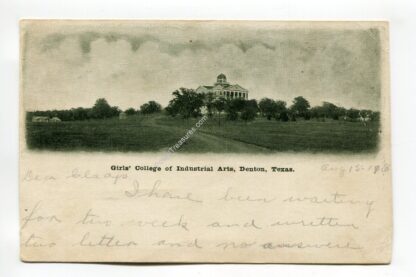 Treasures.com
Girls' College of Industrial Arts, Denton, Texas.
Dear Gladys Aug 15-190
I have been waiting
for two week and written
two letter and no answere